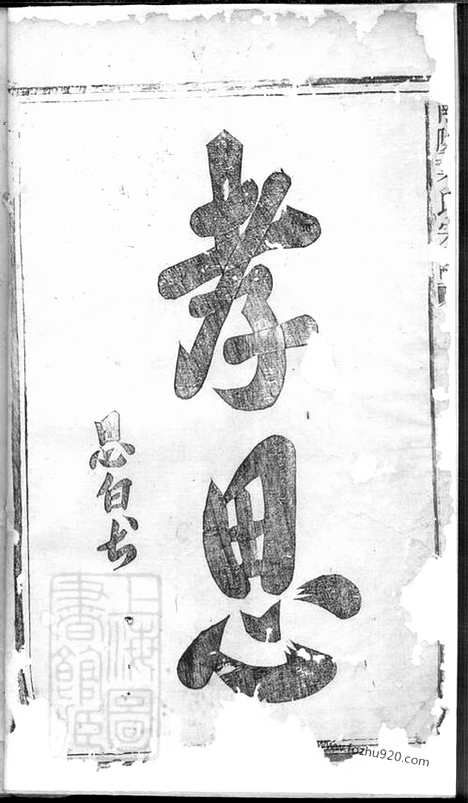 孝思
思白书
上海圖
書館藏
www.fozhu920.com